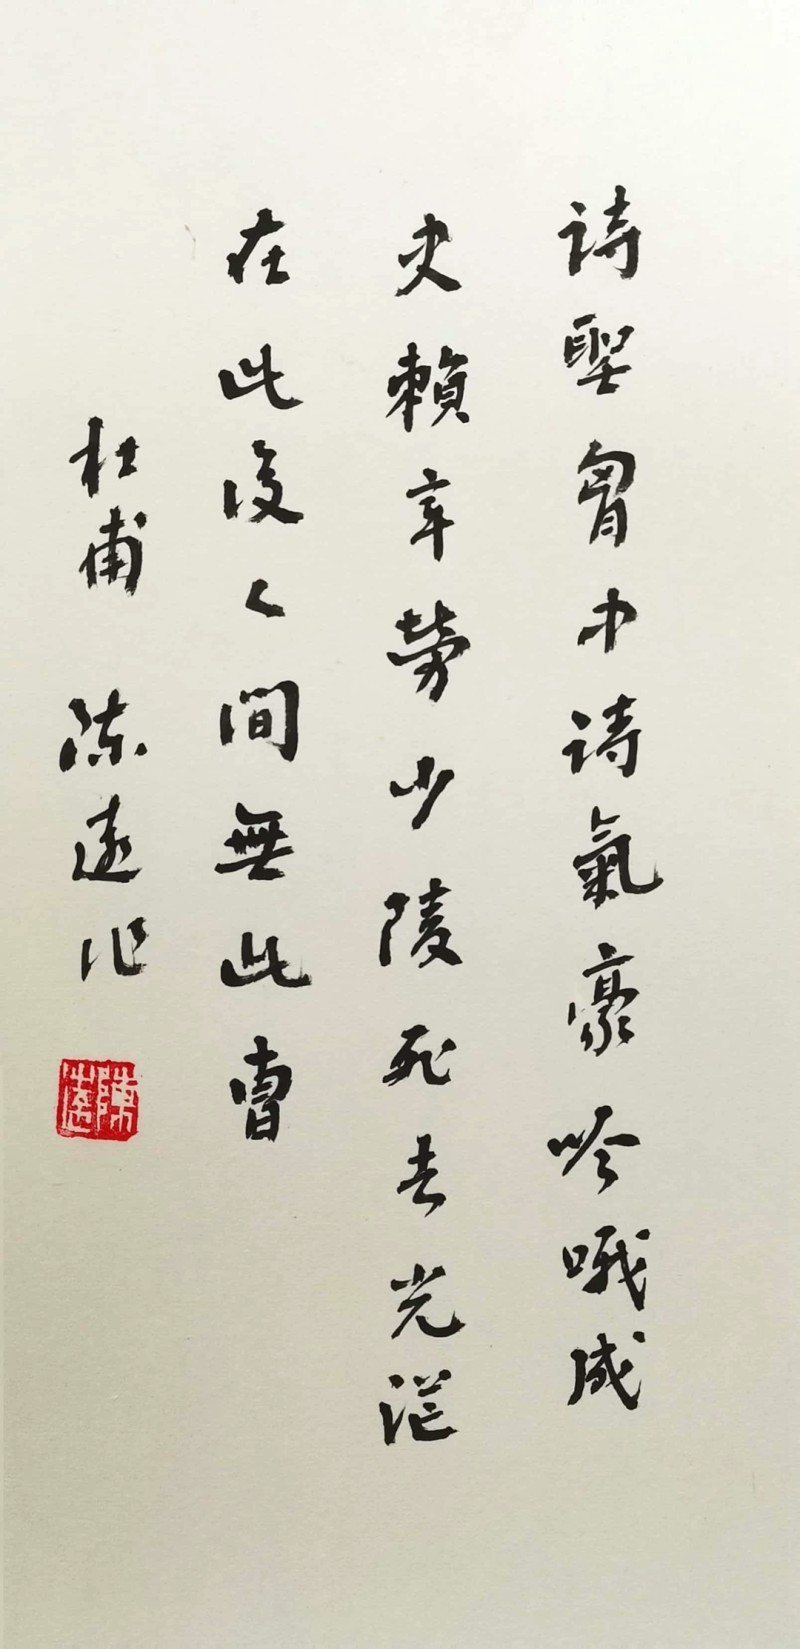 詩聖胷中詩氣豪吟哦成
史賴辛勞少陵死去光茫
在此後人間無此曹
杜甫 陳遠作
陳遠